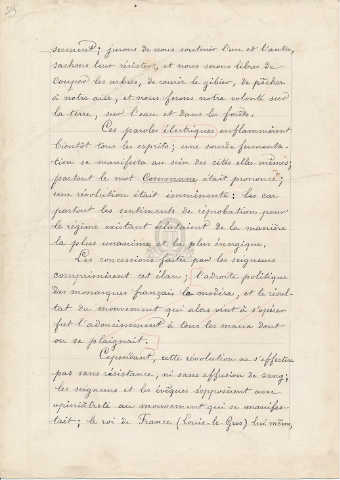 serment; jurons de nous soutenir l'un et l'autre,
sachons leur résister, et nous serons libres de
couper les arbres, de courir le gibier, de pêcher
à notre aise, et nous ferons notre volonté sur
la terre, sur l'eau et dans les forêts.
Ces paroles électriques enflammèrent
bientôt tous les esprits; une sourde fermenta-
tion se manifesta au sein des cités elles-mêmes;
partout le mot Commune était prononcé;
une révolution était imminente: car
partout les sentiments de réprobation pour
le régime existant éclataient de la manière
la plus unanime et la plus énergique.
Les concessions faites par les seigneurs
comprimèrent cet élan; l'adroite politique
des monarques français le modéra, et le résul-
tat du mouvement qui alors vint à s'opérer
fut l'adoucissement à tous les maux dont
on se plaignait.
Cependant, cette révolution ne s'effectua
pas sans résistance, ni sans effusion de sang;
les seigneurs et les évêques s'opposèrent avec
opiniâtreté au mouvement qui se manifes-
tait; le roi de France (Louis-le-Gros) lui-même,